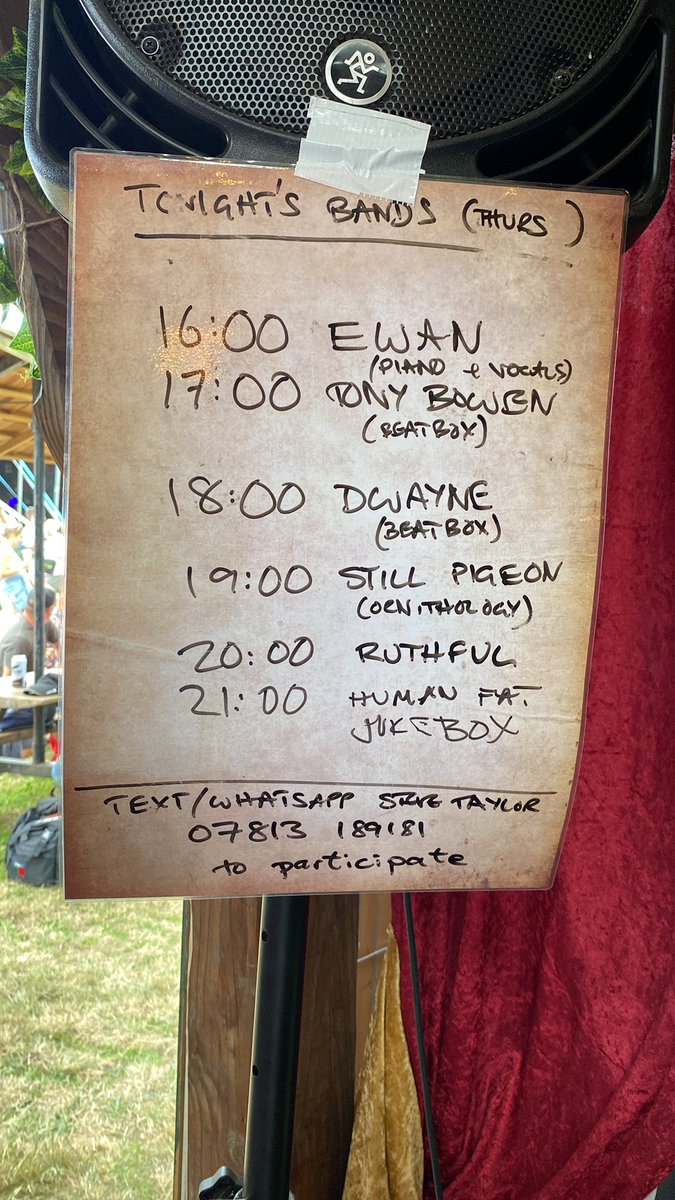 TONIGHT'S BANDS (THURS)
16:00 EWAN
(PIANO + VOCALS)
17:00 TONY BOWEN
(BEATBOX)
18:00 DWAYNE
(BEATBOX)
19:00 STILL PIGEON
(ORNITHOLOGY)
20:00 RUTHFUL
21:00 HUMAN FAT
JUKEBOX
TEXT/WHATSAPP STEVE TAYLOR
07813 189181
to participate